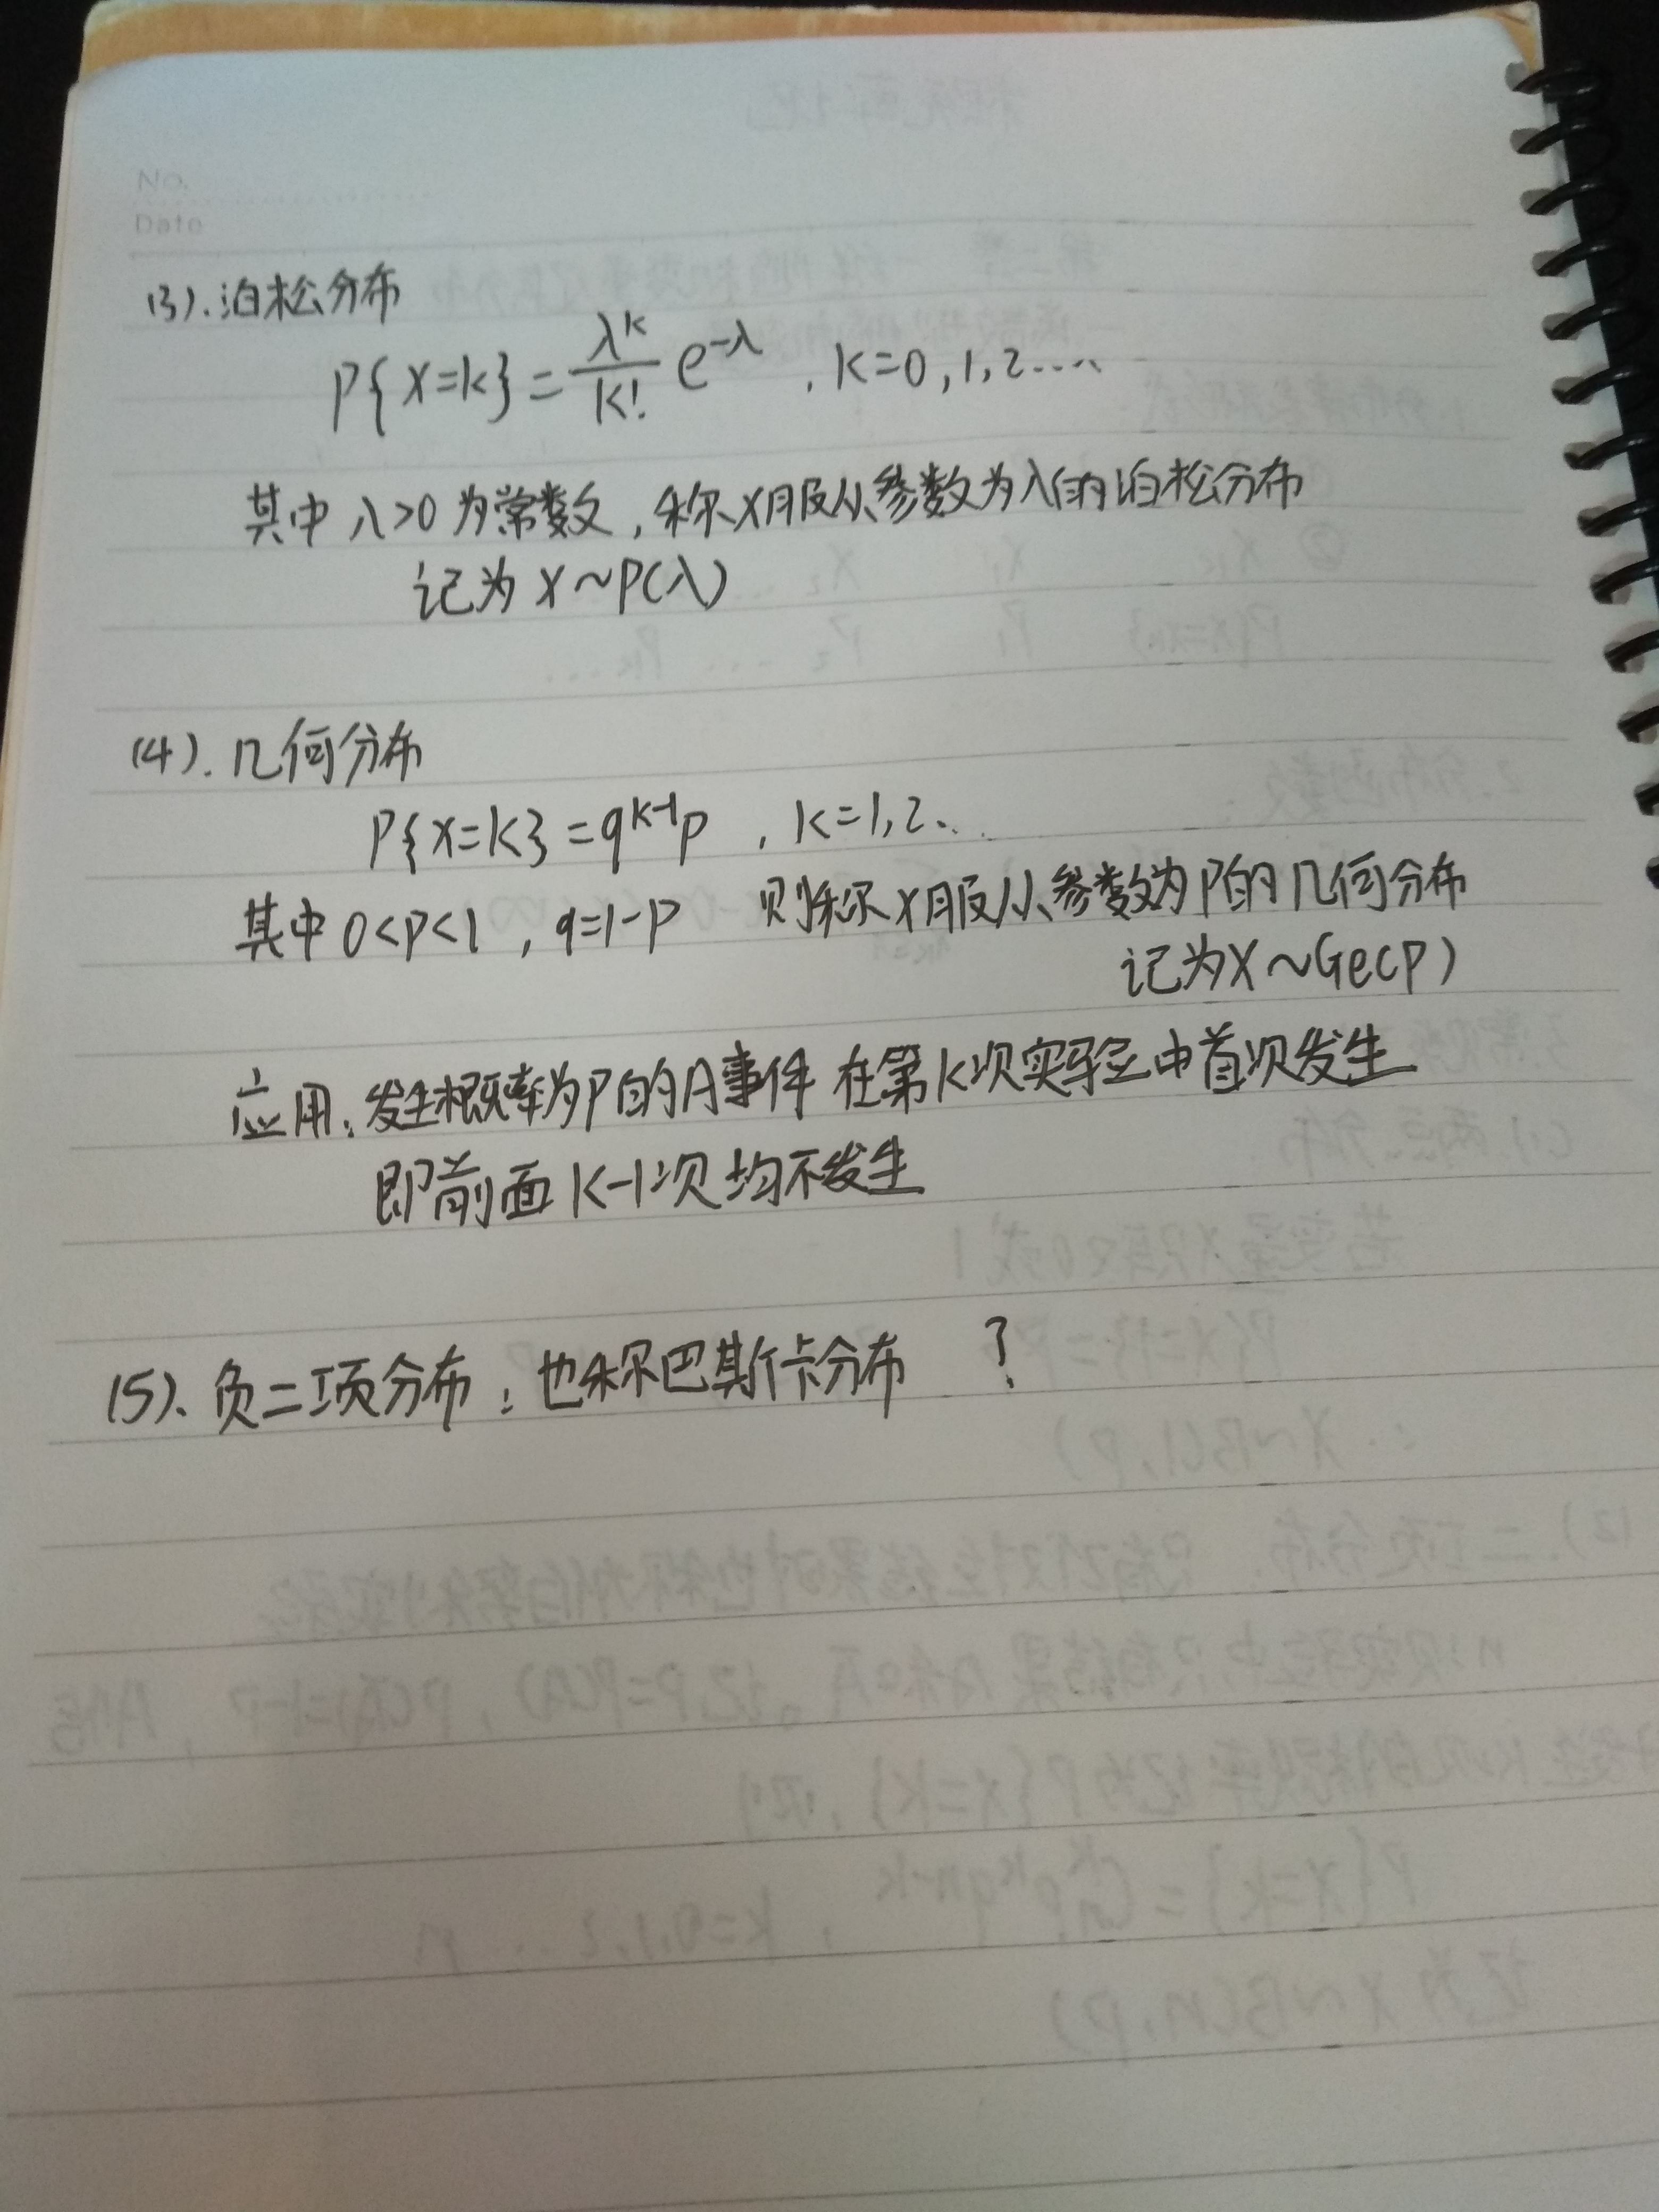 No.
Date
(3).泊松分布
P{X=k}=λ^k/k! e^-λ , k=0,1,2....
其中 λ>0 为常数,称X服从参数为λ的泊松分布
记为 X~P(λ)
(4).几何分布
P{X=k}=q^k-1 p , k=1,2...
其中 0<P<1 , q=1-P 则称X服从参数为P的几何分布
记为X~Ge(P)
应用:发生概率为P的A事件 在第k次实验中首次发生
即前面k-1次均不发生
(5).负二项分布:也称巴斯卡分布 ?